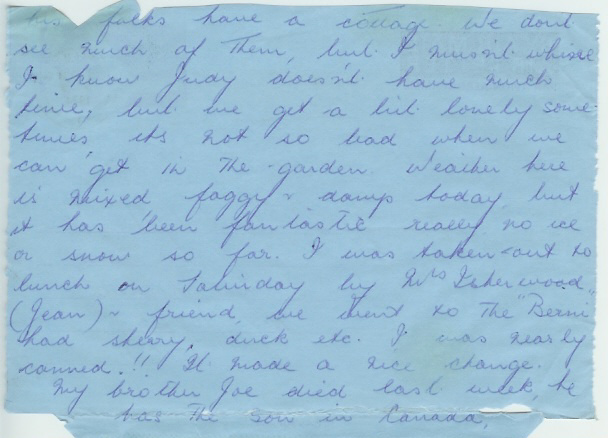 his folks have a cottage. We dont
see much of them, but I mussnt whine
I know Judy doesn't have much
time, but we get a bit lonely some-
times, its not so bad when we
can get in the garden. Weather here
is mixed foggy & damp today but
it has been fantastic really no ice
or snow so far. I was taken out to
lunch on Saturday by Mrs Isherwood,
(Jean) & friend, we went to The "Berni"
had sherry, duck etc. I was nearly
canned.!! It made a nice change.
My brother Joe died last week, he
has the son in Canada,